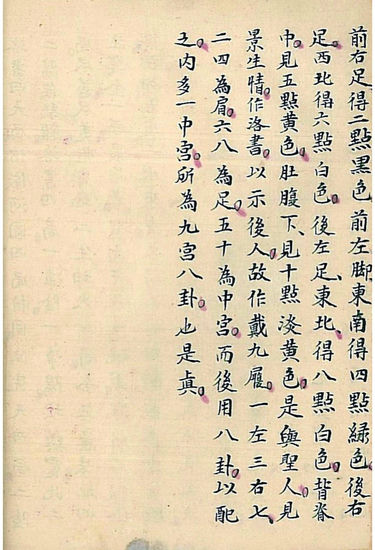 前右足得二點黑色前左脚東南得四點綠色。後右
足。西北得六點白色。後左足、東北、得八點白色。背脊
中。見五點黃色。肚腹下、見十點淡黃色。是與聖人見
景生情。作洛書。以示後人。故作戴九履。一左三右七、
二四為肩。六八為足。五十為中宮。而後用八卦。以配
之。內多一中宮。所為九宮八卦。也是真。